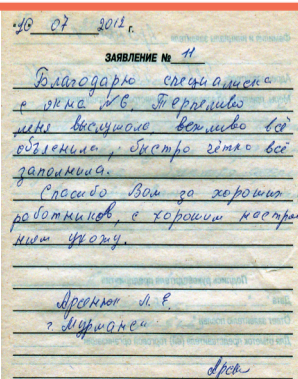 26 07 2012 г.
ЗАЯВЛЕНИЕ № 11
Благодарю специалиста
с окна №6. Терпеливо
меня выслушала, вежливо всё
объяснила, быстро чётко всё
заполнила.
Спасибо Вам за хороших
работников, с хорошим настрое
нием ухожу.
Арсенюк Л. Е.
г. Мурманск